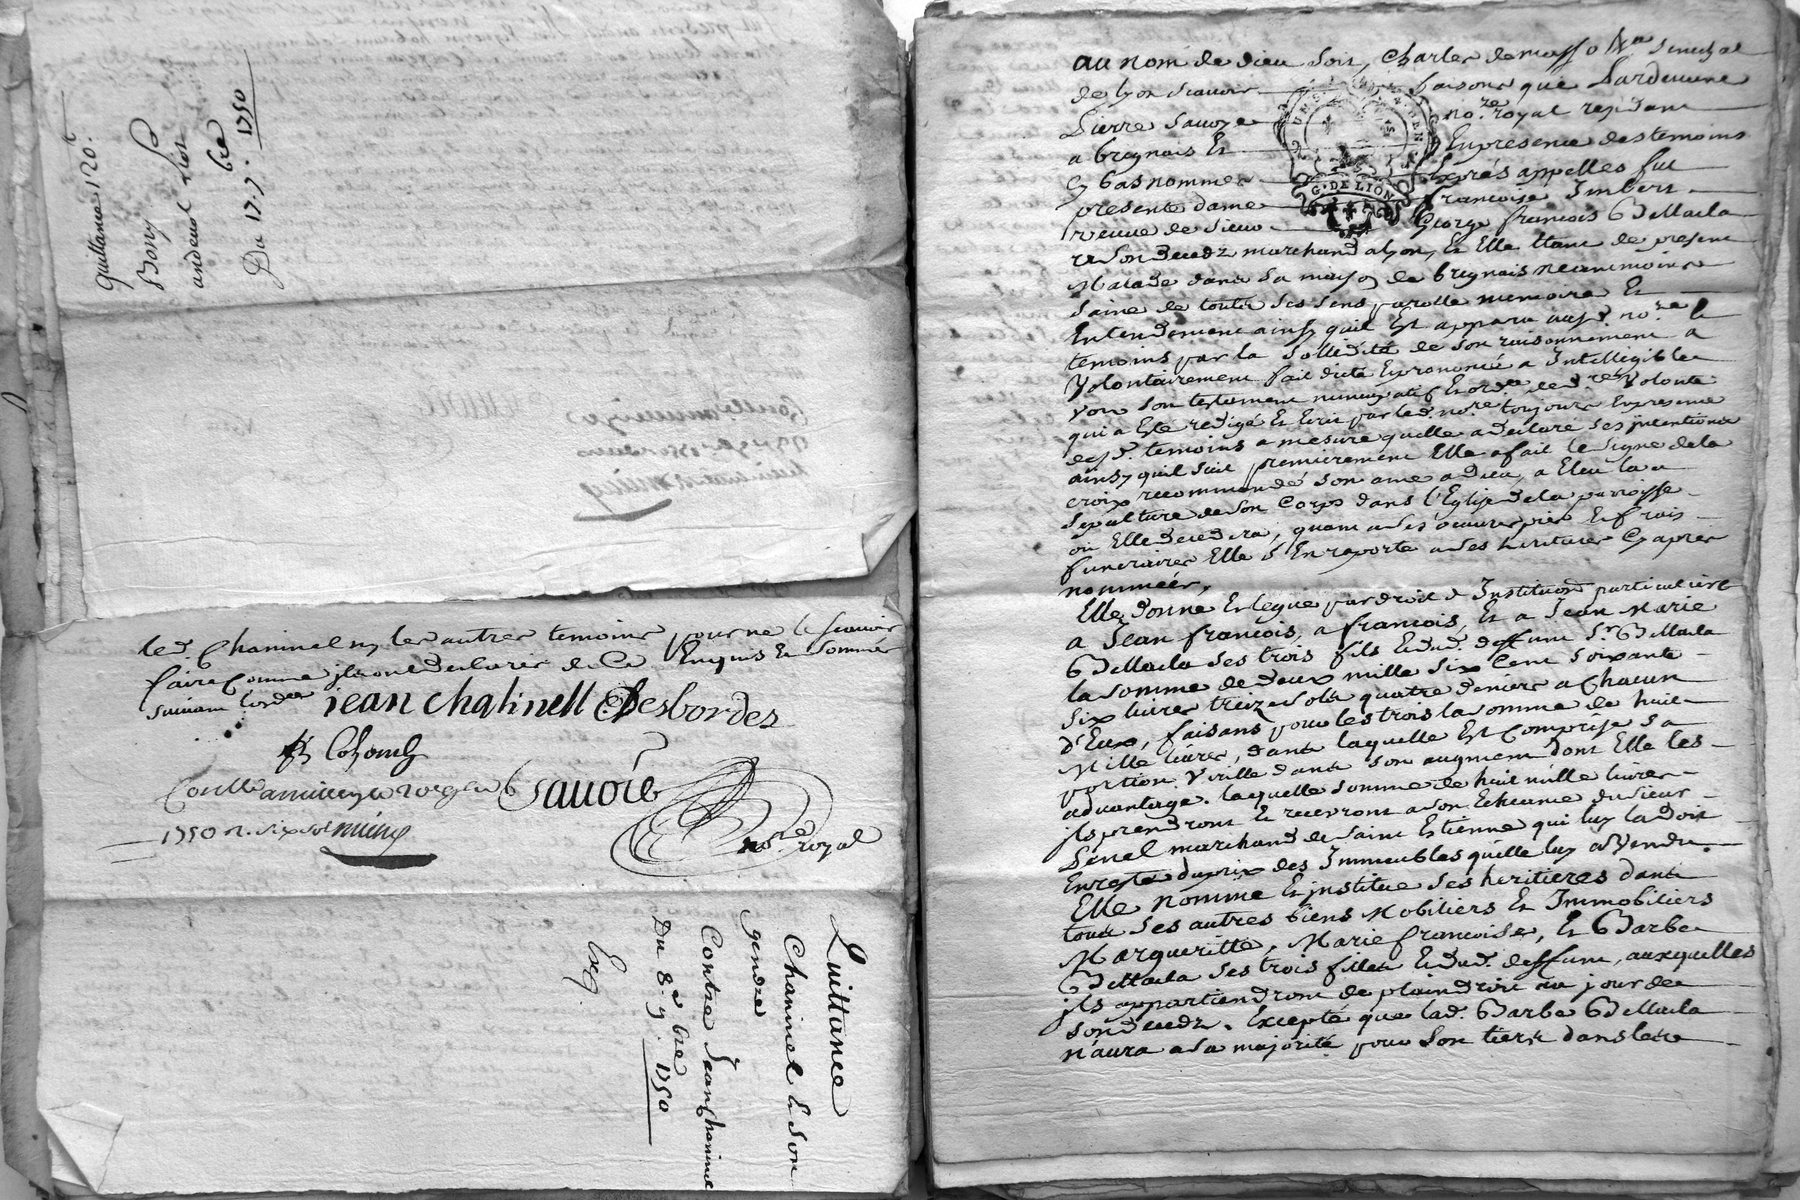 quittance 120.t
Bony
andeux
Du 17. 7.bre 1750
led. Chaninel ny les autres temoins pour ne le scavoir
faire comme ils ont declarés de ce Enquis et sommes
suivant lord.ce jean chatinell Desbordes
Colomb
Conttle a
1750 R. six sols
Savoie
no.re royal
Quittance
Chaninel & son
gendre
Contre Jean Chaninel
Du 8.e 9.bre 1750
Exp.
au nom de dieu soit, Charles de masso Senechal
de lyon scavoir faisons que Pardevant
Pierre Savoye no.re royal residant
a brignais Et En presence des temoins
Cy bas nommes Exprés appelles fut
presente dame francoise Imbert
veuve de sieur George francois
son decedz marchand a lyon, Et Elle Etant de present
Malade dans sa maison de brignais neanmoins
saine de toutes ses sens parolle memoire Et
Entendement ainsy quil Est apparu ausd. no.re &
temoins par la sollidité de son raisonnement a
Volontairement fait dicté Et prononcé a Intelligible
voix son testement nuncupatif Et ord.ce de d.re Volonte
qui a Esté redigé Et Ecrit par led. no.re toujours En presence
desd. temoins a mesure quelle a declare ses intentions
ainsy quil suit premierement Elle a fait le signe de la
croix recommandé son ame a dieu, a Eleu la
sepulture de son Corps dans l'Eglise de la parroisse
ou Elle decedera, quant a ses oeuvres pies Et frais
funeraires Elle s'En raporte a ses heritieres Cy apres
nommées,
Elle donne Et legue par droit d'Institution particuliere
a Jean francois, a francois, Et a Jean Marie
ses trois fils & dud. deffunt Sr
la somme de deux mille six Cent soixante
six livres treize sols quatre deniers a Chacun
d'Eux, faisant pour les trois la somme de huit
Mille livres, dans laquelle Est Comprise sa
portion Virille dans son augment dont Elle les
advantage. laquelle somme de huit mille livres
ils prendront Et recevront a son Echeance du sieur
Penel marchand de saint Estienne qui luy la doit
En reste du prix des Immeubles qu'elle luy a Vendu.
Elle Nomme Et institue ses heritieres dans
tous ses autres biens Mobiliers Et Immobiliers
Margueritte, Marie francoise, Et Barbe
ses trois filles & dud. deffunt, auxquelles
ils appartiendront de plain droit au jour de
son decedz. Excepte que lad. Barbe
n'aura a sa majorité pour son tiers dans les